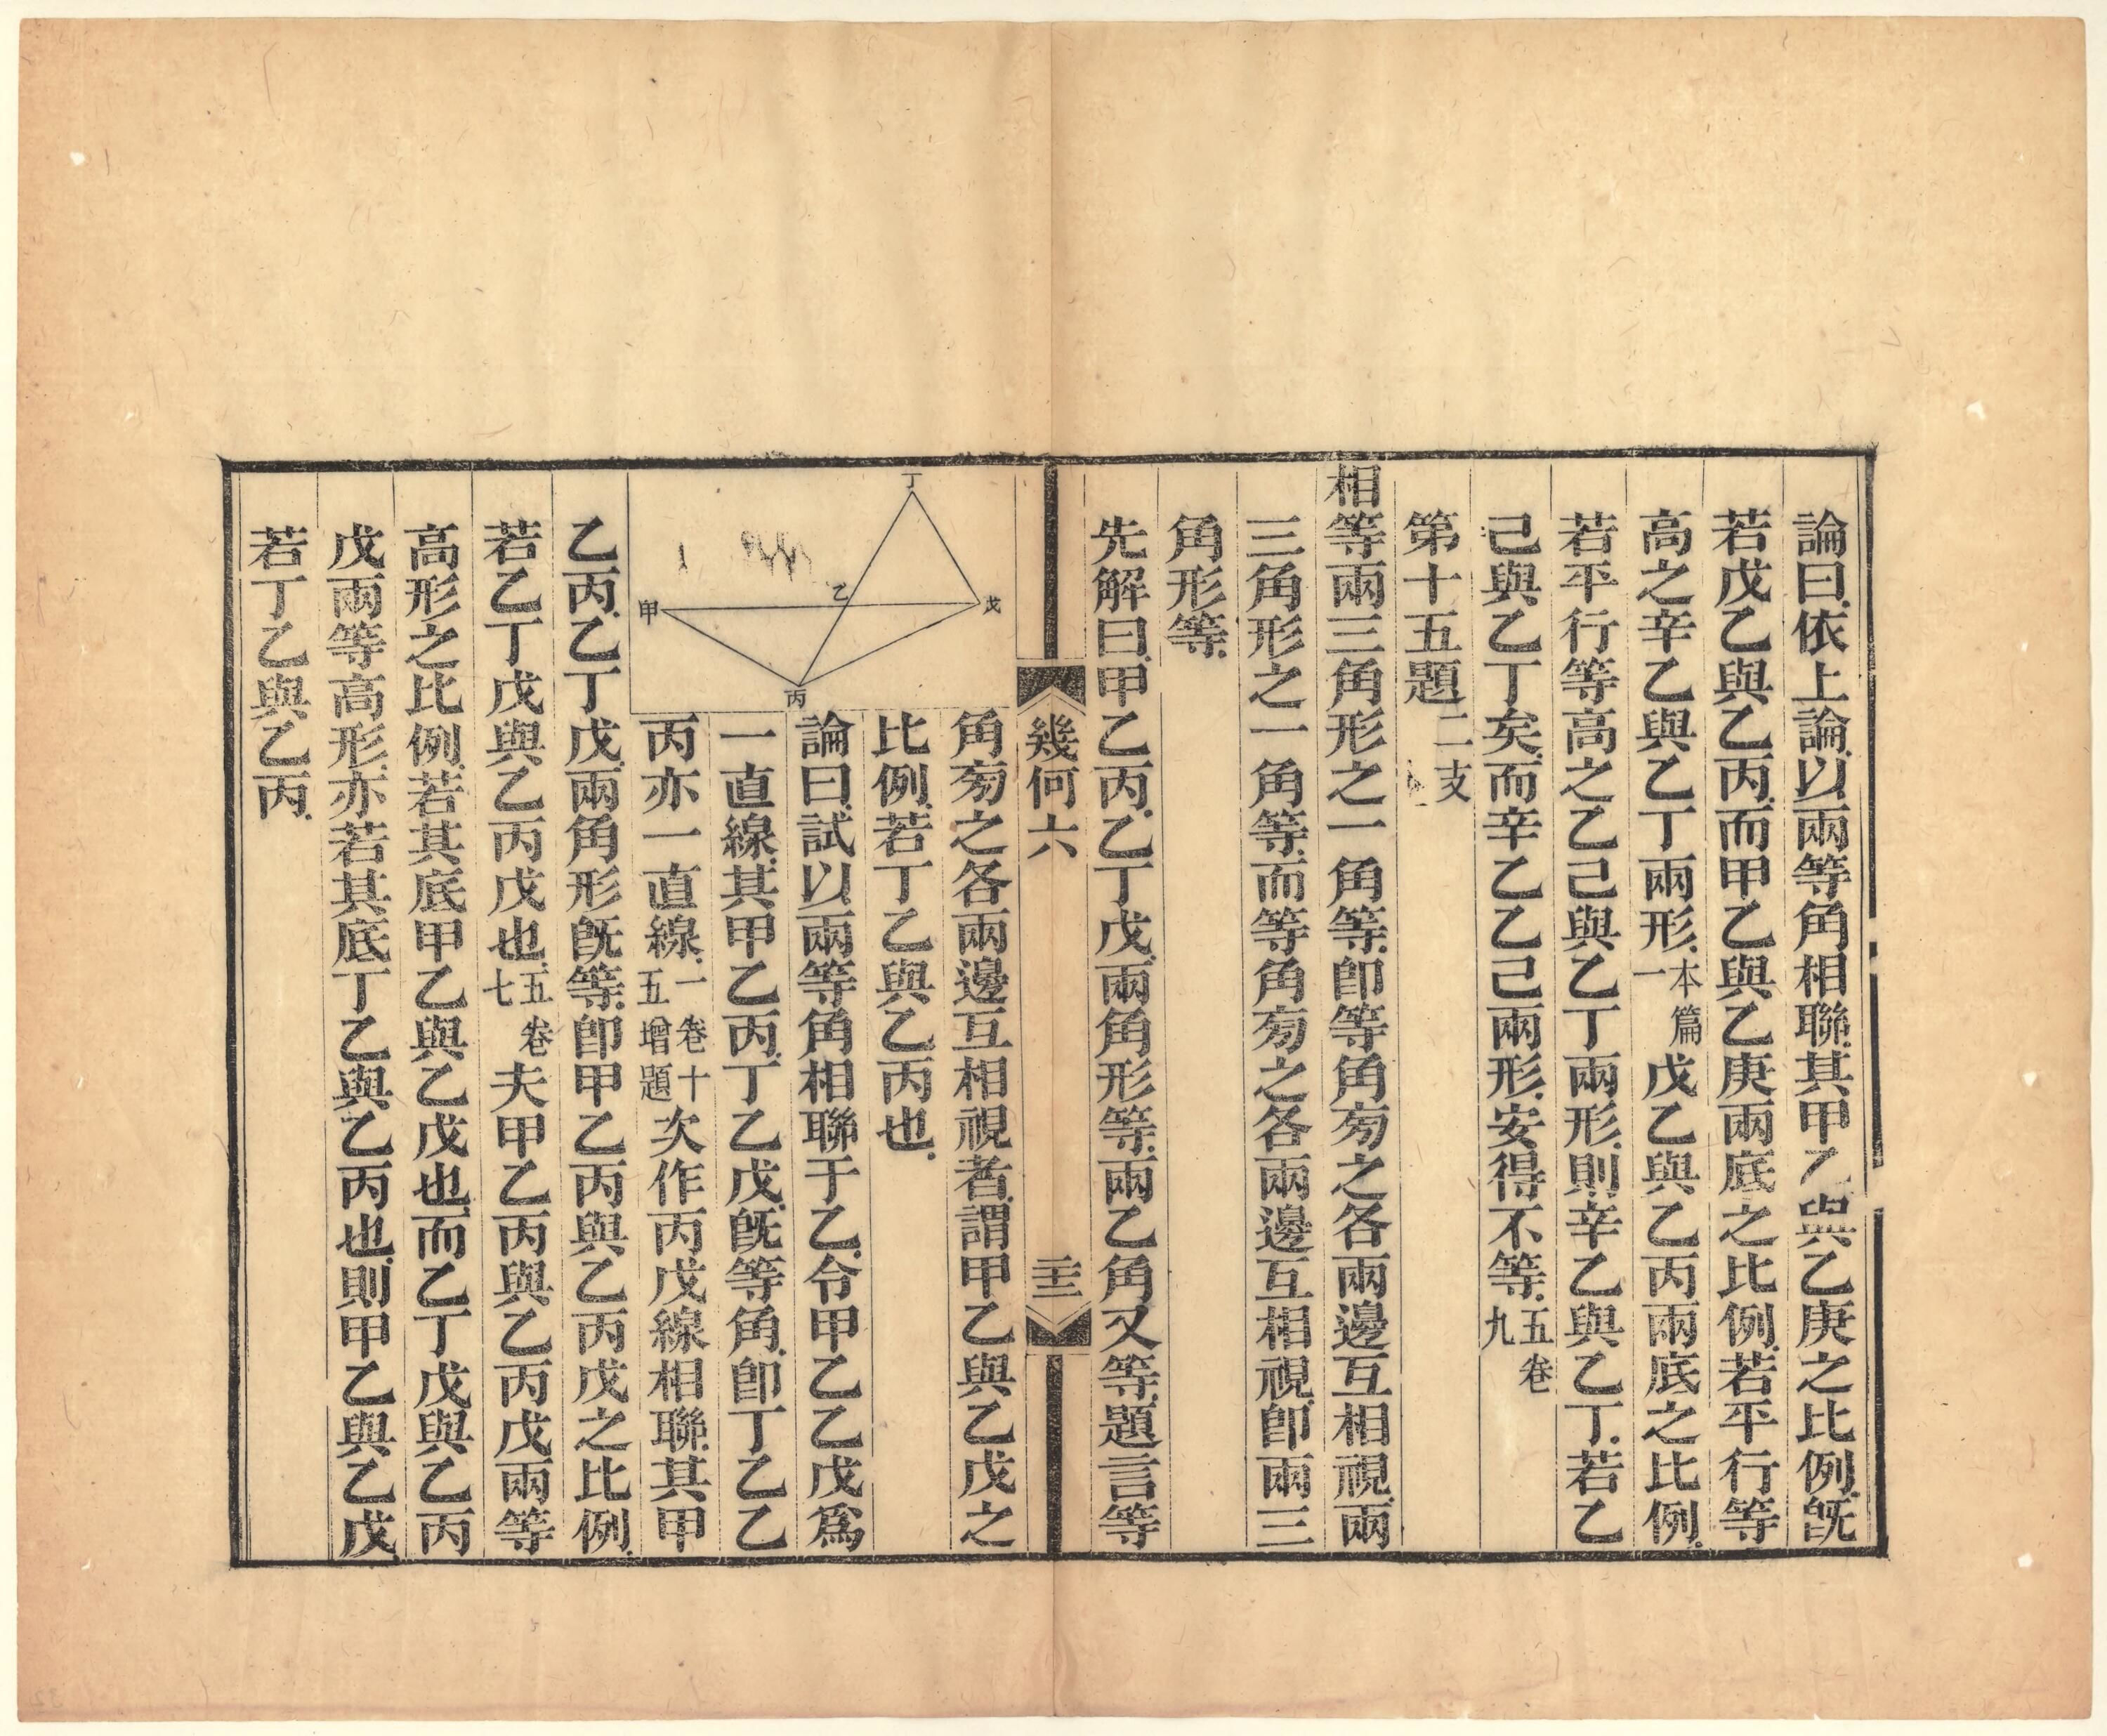 論曰依上論以兩等角相聯其甲乙與乙庚之比例旣
若戊乙與乙丙而甲乙與乙庚兩底之比例若平行等
高之辛乙與乙丁兩形本篇一戊乙與乙丙兩底之比例
若平行等高之乙己與乙丁兩形則辛乙與乙丁若乙
己與乙丁矣而辛乙乙己兩形安得不等五卷九
第十五題二支
相等兩三角形之一角等卽等角旁之各兩邊互相視兩
三角形之一角等而等角旁之各兩邊互相視卽兩三
角形等
先解曰甲乙丙乙丁戊兩角形等兩乙角又等題言等
幾何六
二十三
角旁之各兩邊互相視者謂甲乙與乙戊之
比例若丁乙與乙丙也
論曰試以兩等角相聯于乙令甲乙乙戊爲
一直線其甲乙丙丁乙戊旣等角卽丁乙乙
丙亦一直線一卷十五增題次作丙戊線相聯其甲
乙丙乙丁戊兩角形旣等卽甲乙丙與乙丙戊之比例
若乙丁戊與乙丙戊也五卷七夫甲乙丙與乙丙戊兩等
高形之比例若其底甲乙與乙戊也而乙丁戊與乙丙
戊兩等高形亦若其底丁乙與乙丙也則甲乙與乙戊
若丁乙與乙丙
丁
乙
甲
戊
丙